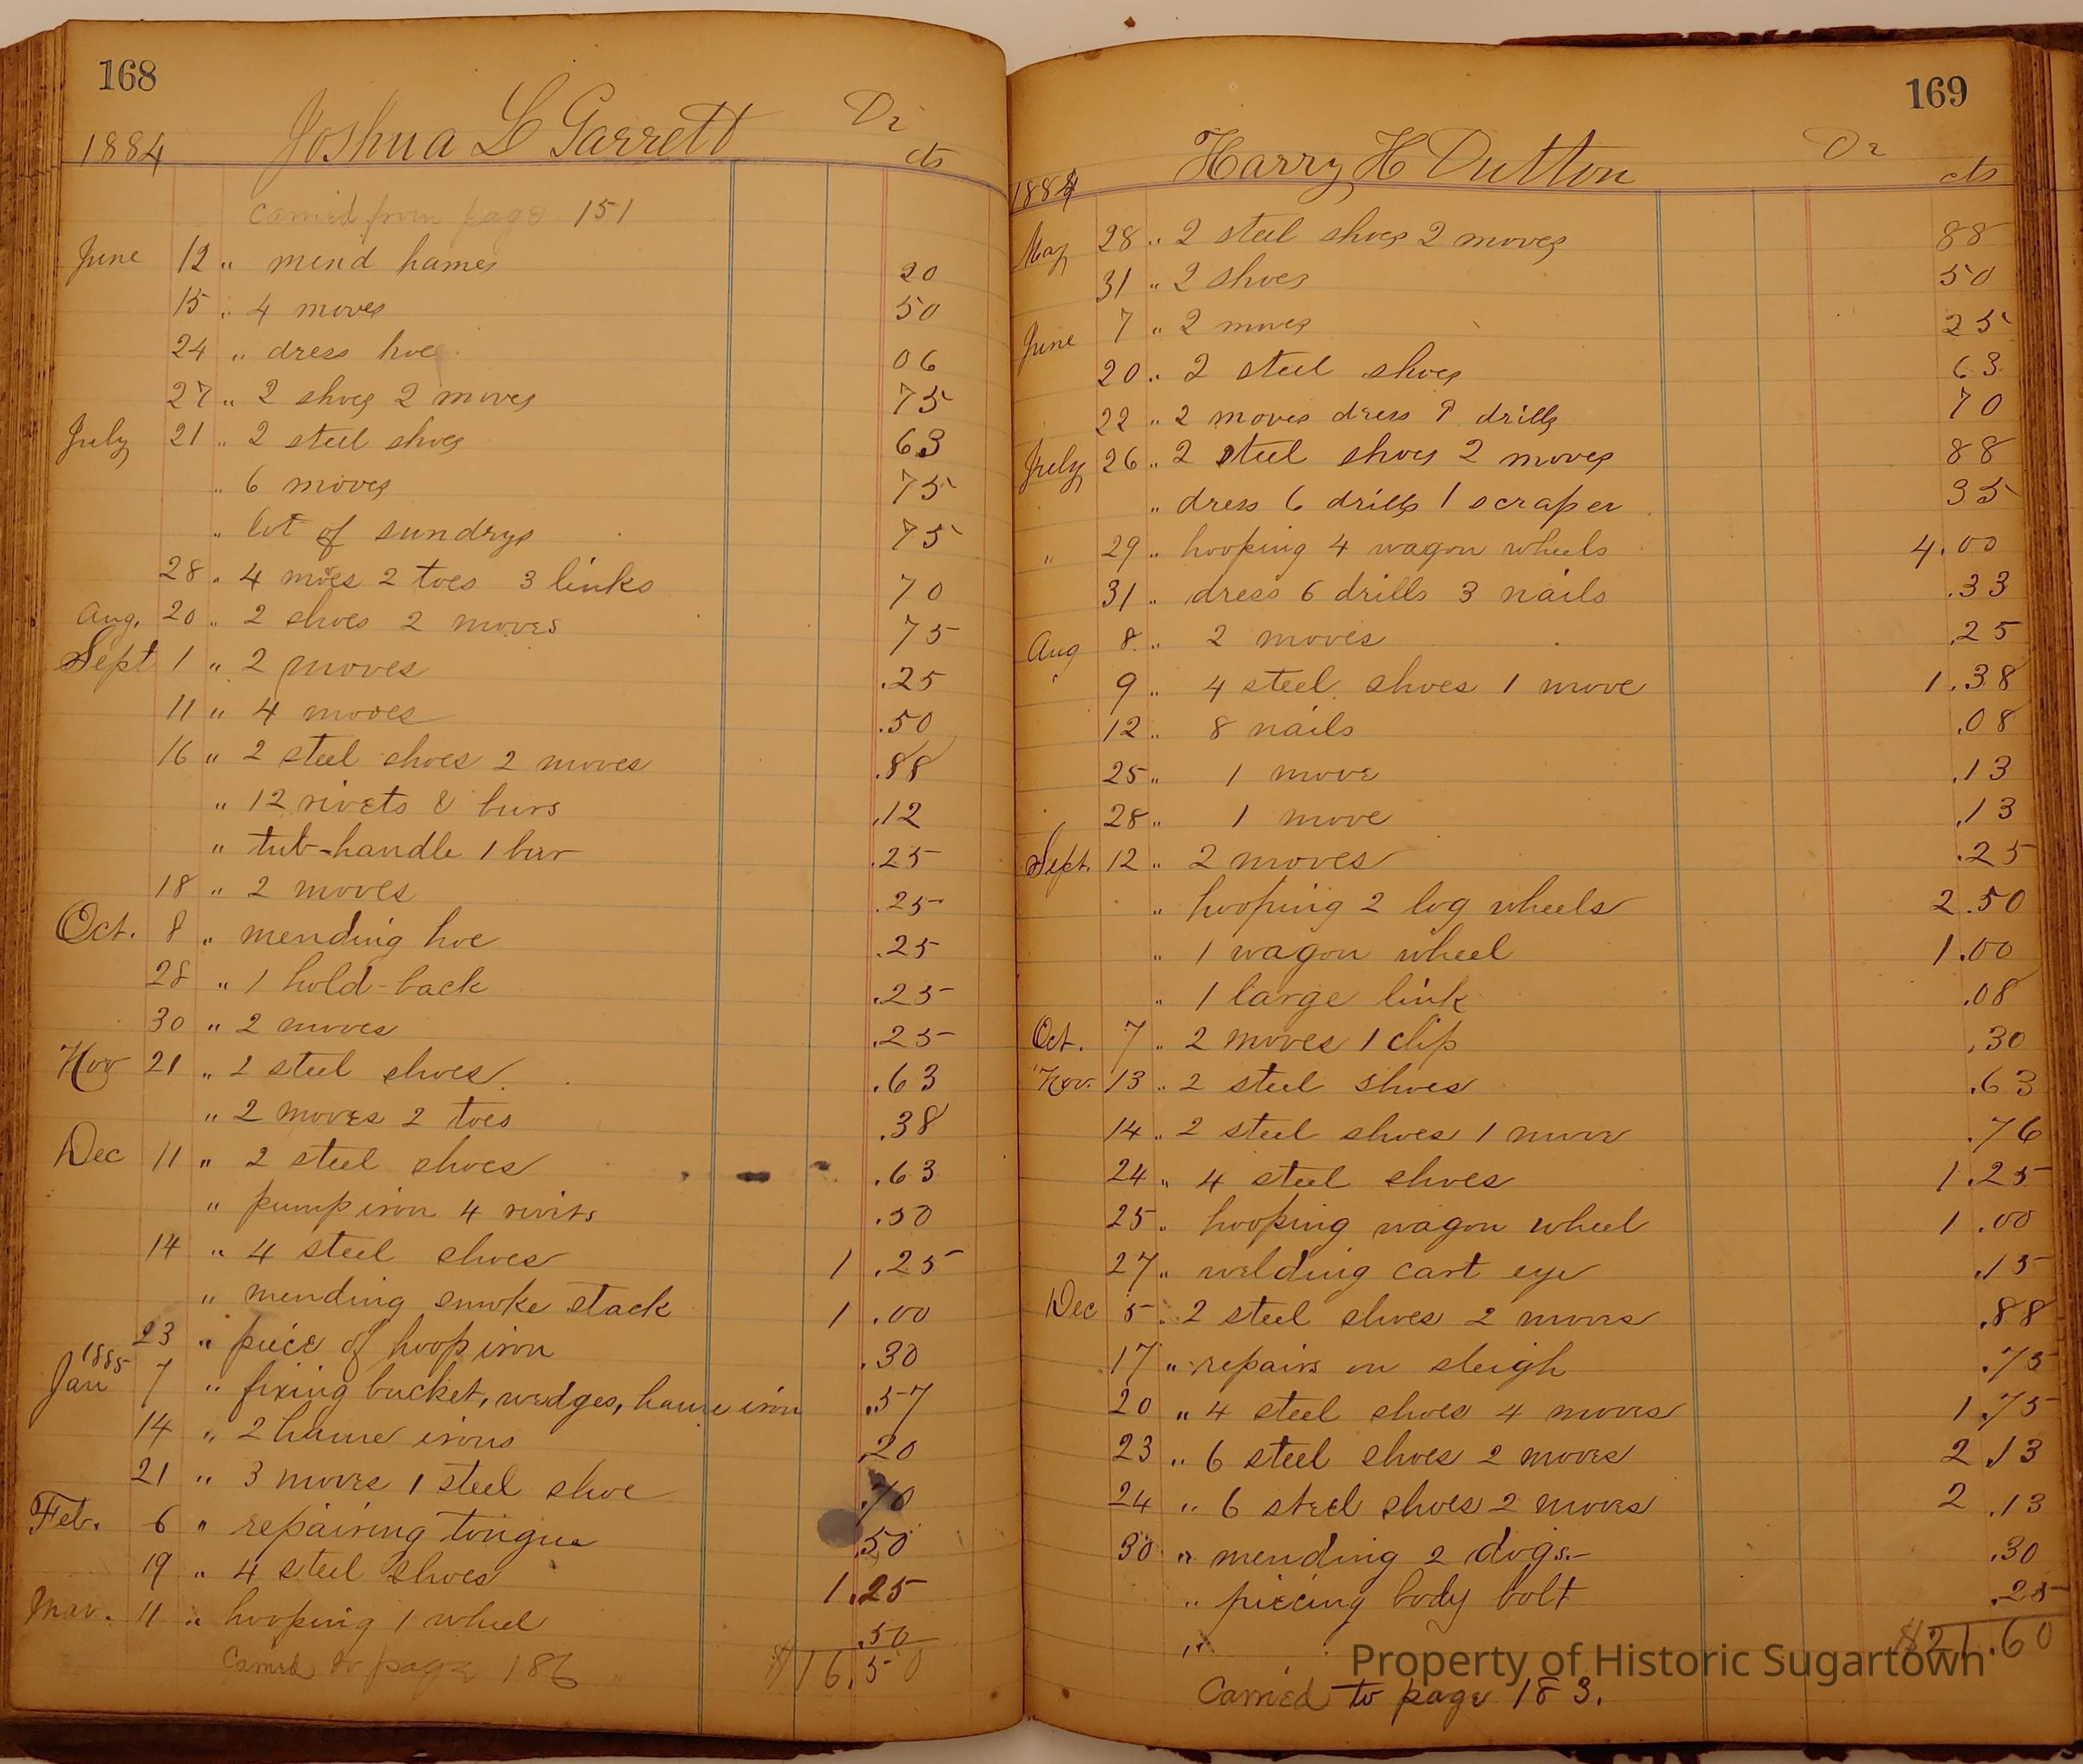 168
Joshua L Garrett Dr
1884 cts
Carried from page 151
June 12 " mend hames 20
15 " 4 moves 50
24 " dress hoe 06
27 " 2 shoes 2 moves 75
July 21 " 2 steel shoes 63
" 6 moves 75
" lot of sundrys 75
28 " 4 moves 2 toes 3 links 70
Aug. 20 " 2 shoes 2 moves 75
Sept 1 " 2 moves .25
11 " 4 moves .50
16 " 2 steel shoes 2 moves .88
" 12 rivets & burs .12
" tub-handle 1 bur .25
18 " 2 moves .25
Oct. 8 " mending hoe .25
28 " 1 hold-back .25
30 " 2 moves .25
Nov 21 " 2 steel shoes .63
" 2 moves 2 toes .38
Dec 11 " 2 steel shoes .63
" pump iron 4 rivits .30
14 " 4 steel shoes 1.25
" mending smoke stack 1.00
23 " piece of hoop iron .30
1885
Jan 7 " fixing bucket, wedges, hame iron .57
14 " 2 hame irons .20
21 " 3 moves 1 steel shoe .70
Feb. 6 " repairing tongue .50
19 " 4 steel shoes 1.25
Mar. 11 " hooping 1 wheel .50
Carried to page 186 $16.50
169
Harry H Dutton Dr
1884 cts
May 28 " 2 steel shoes 2 moves 88
31 " 2 shoes 50
June 7 " 2 moves 25
20 " 2 steel shoes 63
22 " 2 moves dress 9 drills 70
July 26 " 2 steel shoes 2 moves 88
" dress 6 drills 1 scraper 35
" 29 " hooping 4 wagon wheels 4.00
31 " dress 6 drills 3 nails .33
Aug 8 " 2 moves .25
" 9 " 4 steel shoes 1 move 1.38
12 " 8 nails .08
25 " 1 move .13
28 " 1 move .13
Sept. 12 " 2 moves .25
" hooping 2 log wheels 2.50
" 1 wagon wheel 1.00
" 1 large link .08
Oct. 7 " 2 moves 1 clip .30
Nov. 13 " 2 steel shoes .63
14 " 2 steel shoes 1 move .76
24 " 4 steel shoes 1.25
25 " hooping wagon wheel 1.00
27 " welding cart eye .15
Dec 5 " 2 steel shoes 2 moves .88
17 " repairs on sleigh .75
20 " 4 steel shoes 4 moves 1.75
23 " 6 steel shoes 2 moves 2.13
24 " 6 steel shoes 2 moves 2.13
30 " mending 2 dogs .30
" piecing body bolt .25
" $21.60
Property of Historic Sugartown
Carried to page 183.